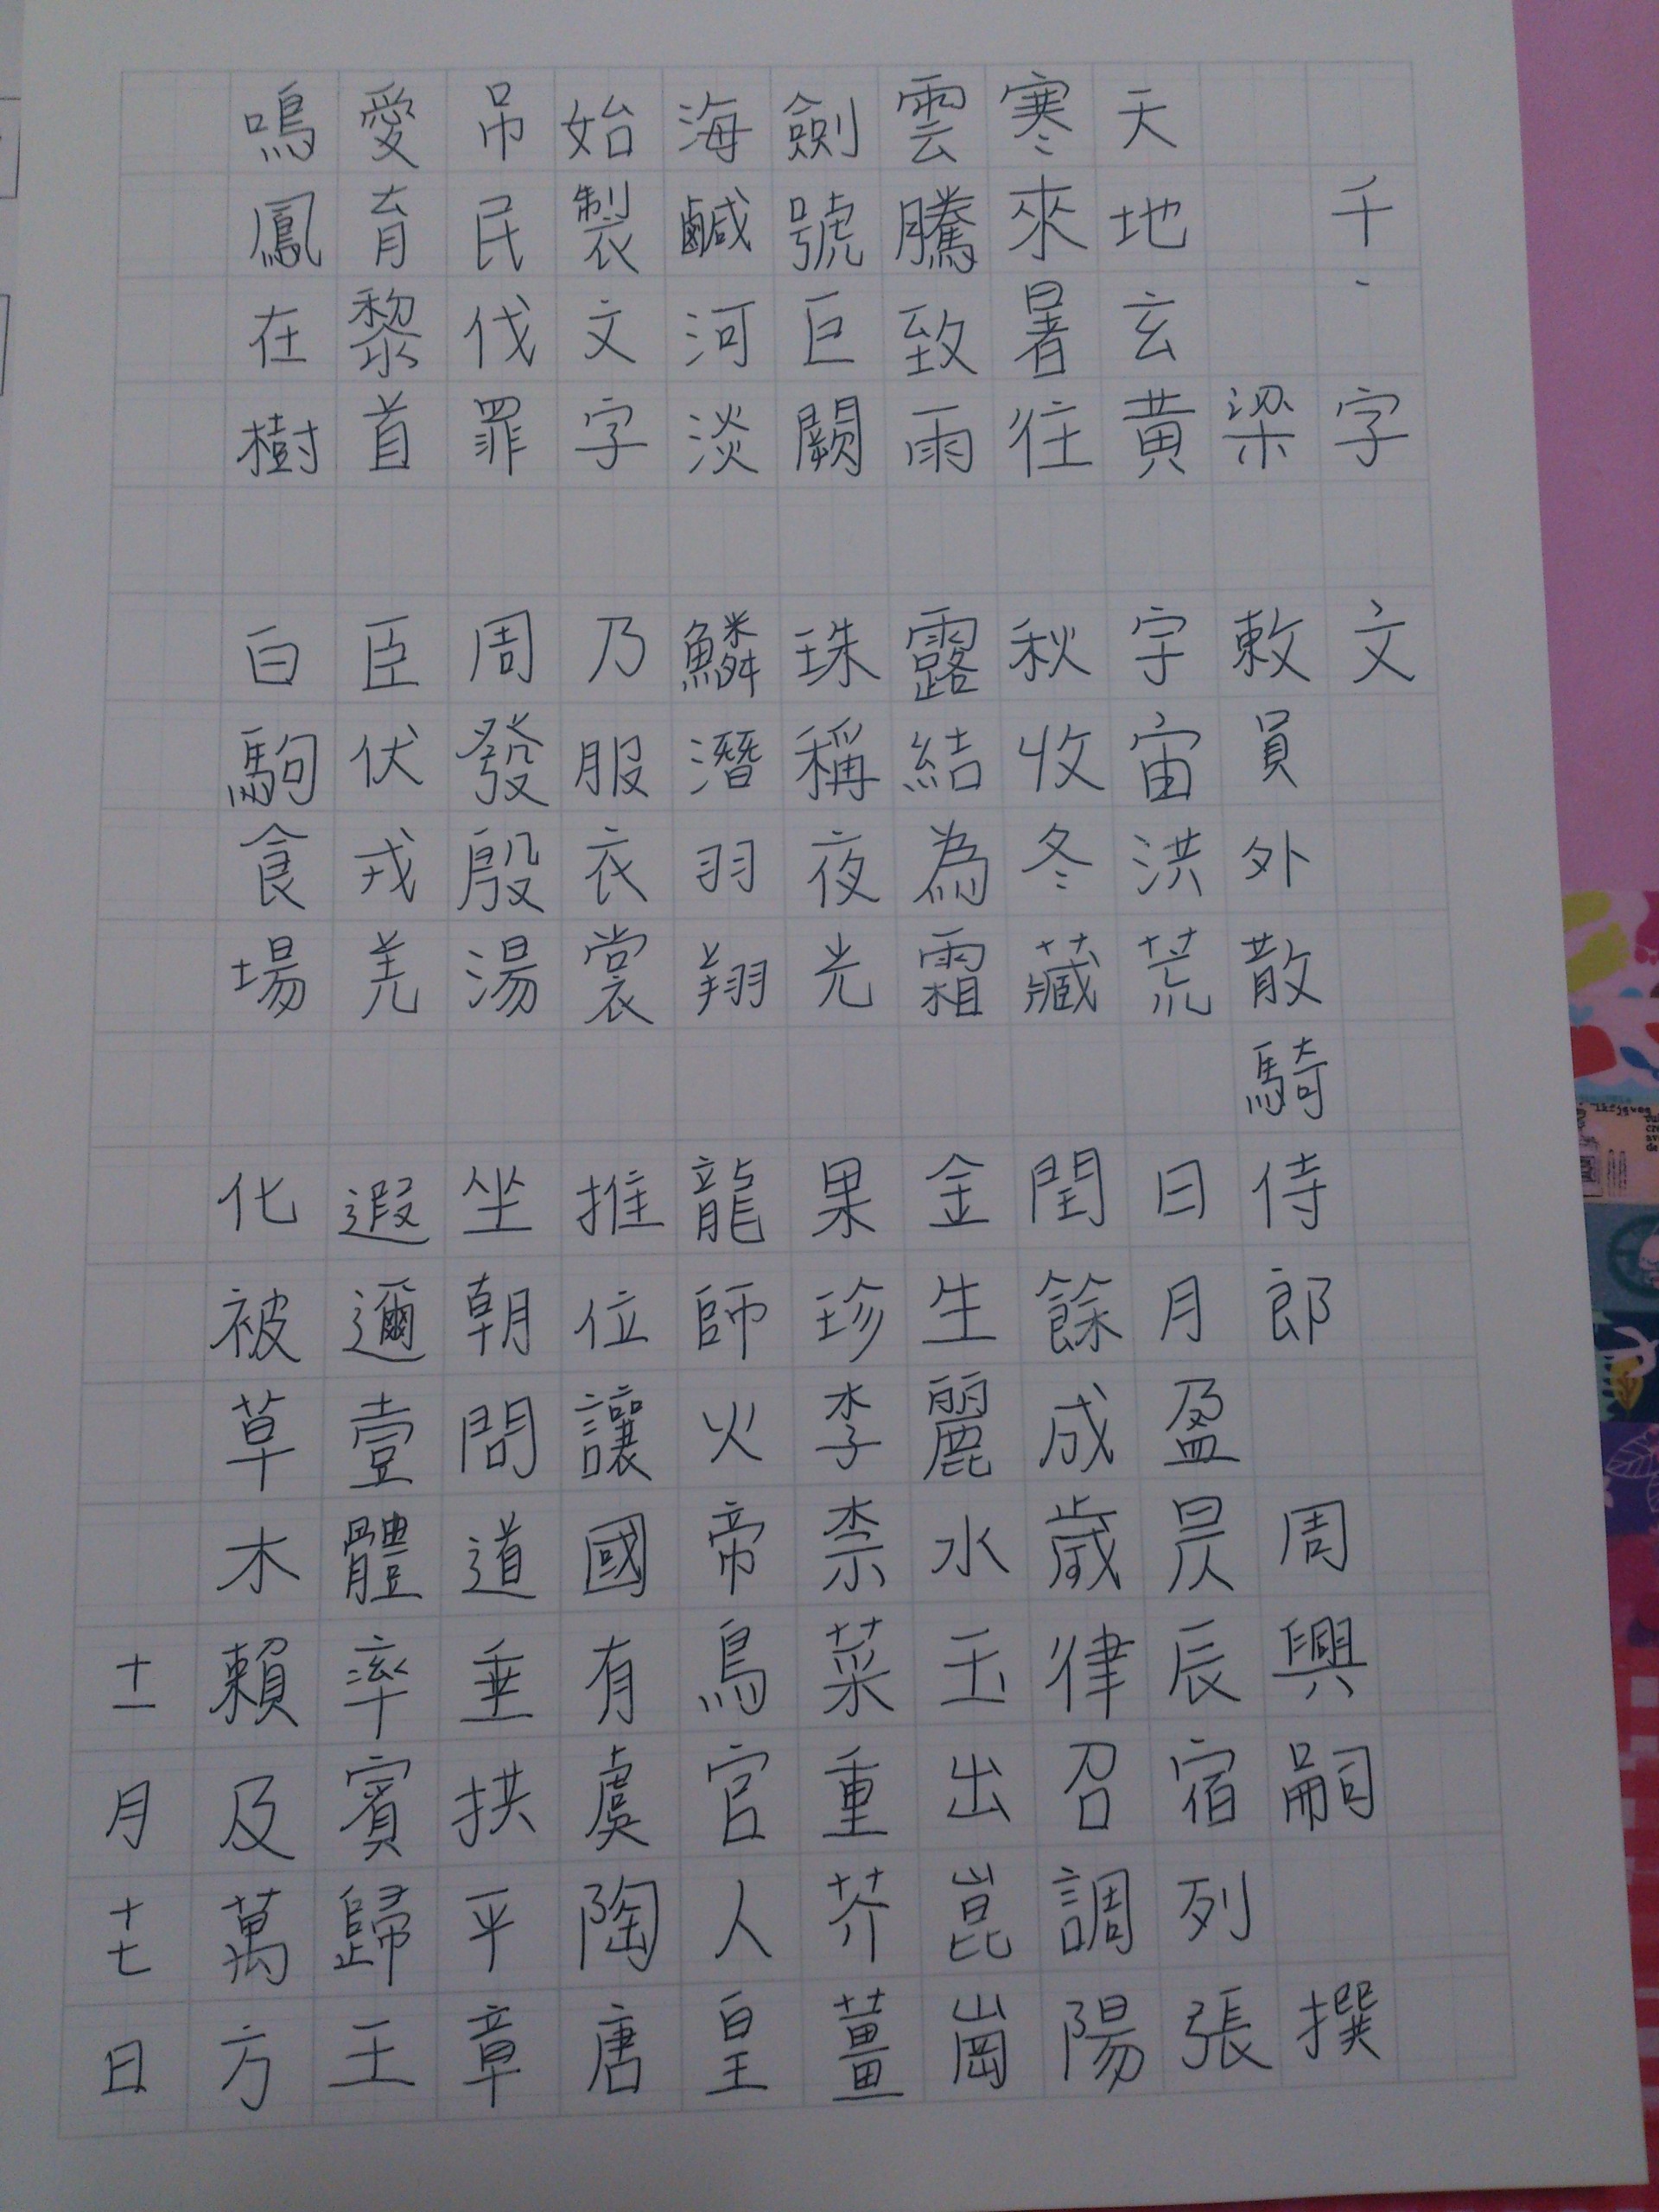 千、字文
梁敕員外散騎侍郎周興嗣撰
天地玄黃宇宙洪荒日月盈昃辰宿列張
寒來暑往秋收冬藏閏餘成歲律召調陽
雲騰致雨露結為霜金生麗水玉出崑崗
劍號巨闕珠稱夜光果珍李柰菜重芥薑
海鹹河淡鱗潛羽翔龍師火帝鳥官人皇
始製文字乃服衣裳推位讓國有虞陶唐
吊民伐罪周發殷湯坐朝問道垂拱平章
愛育黎首臣伏戎羌遐邇壹體率賓歸王
鳴鳳在樹白駒食場化被草木賴及萬方
十一月十七日